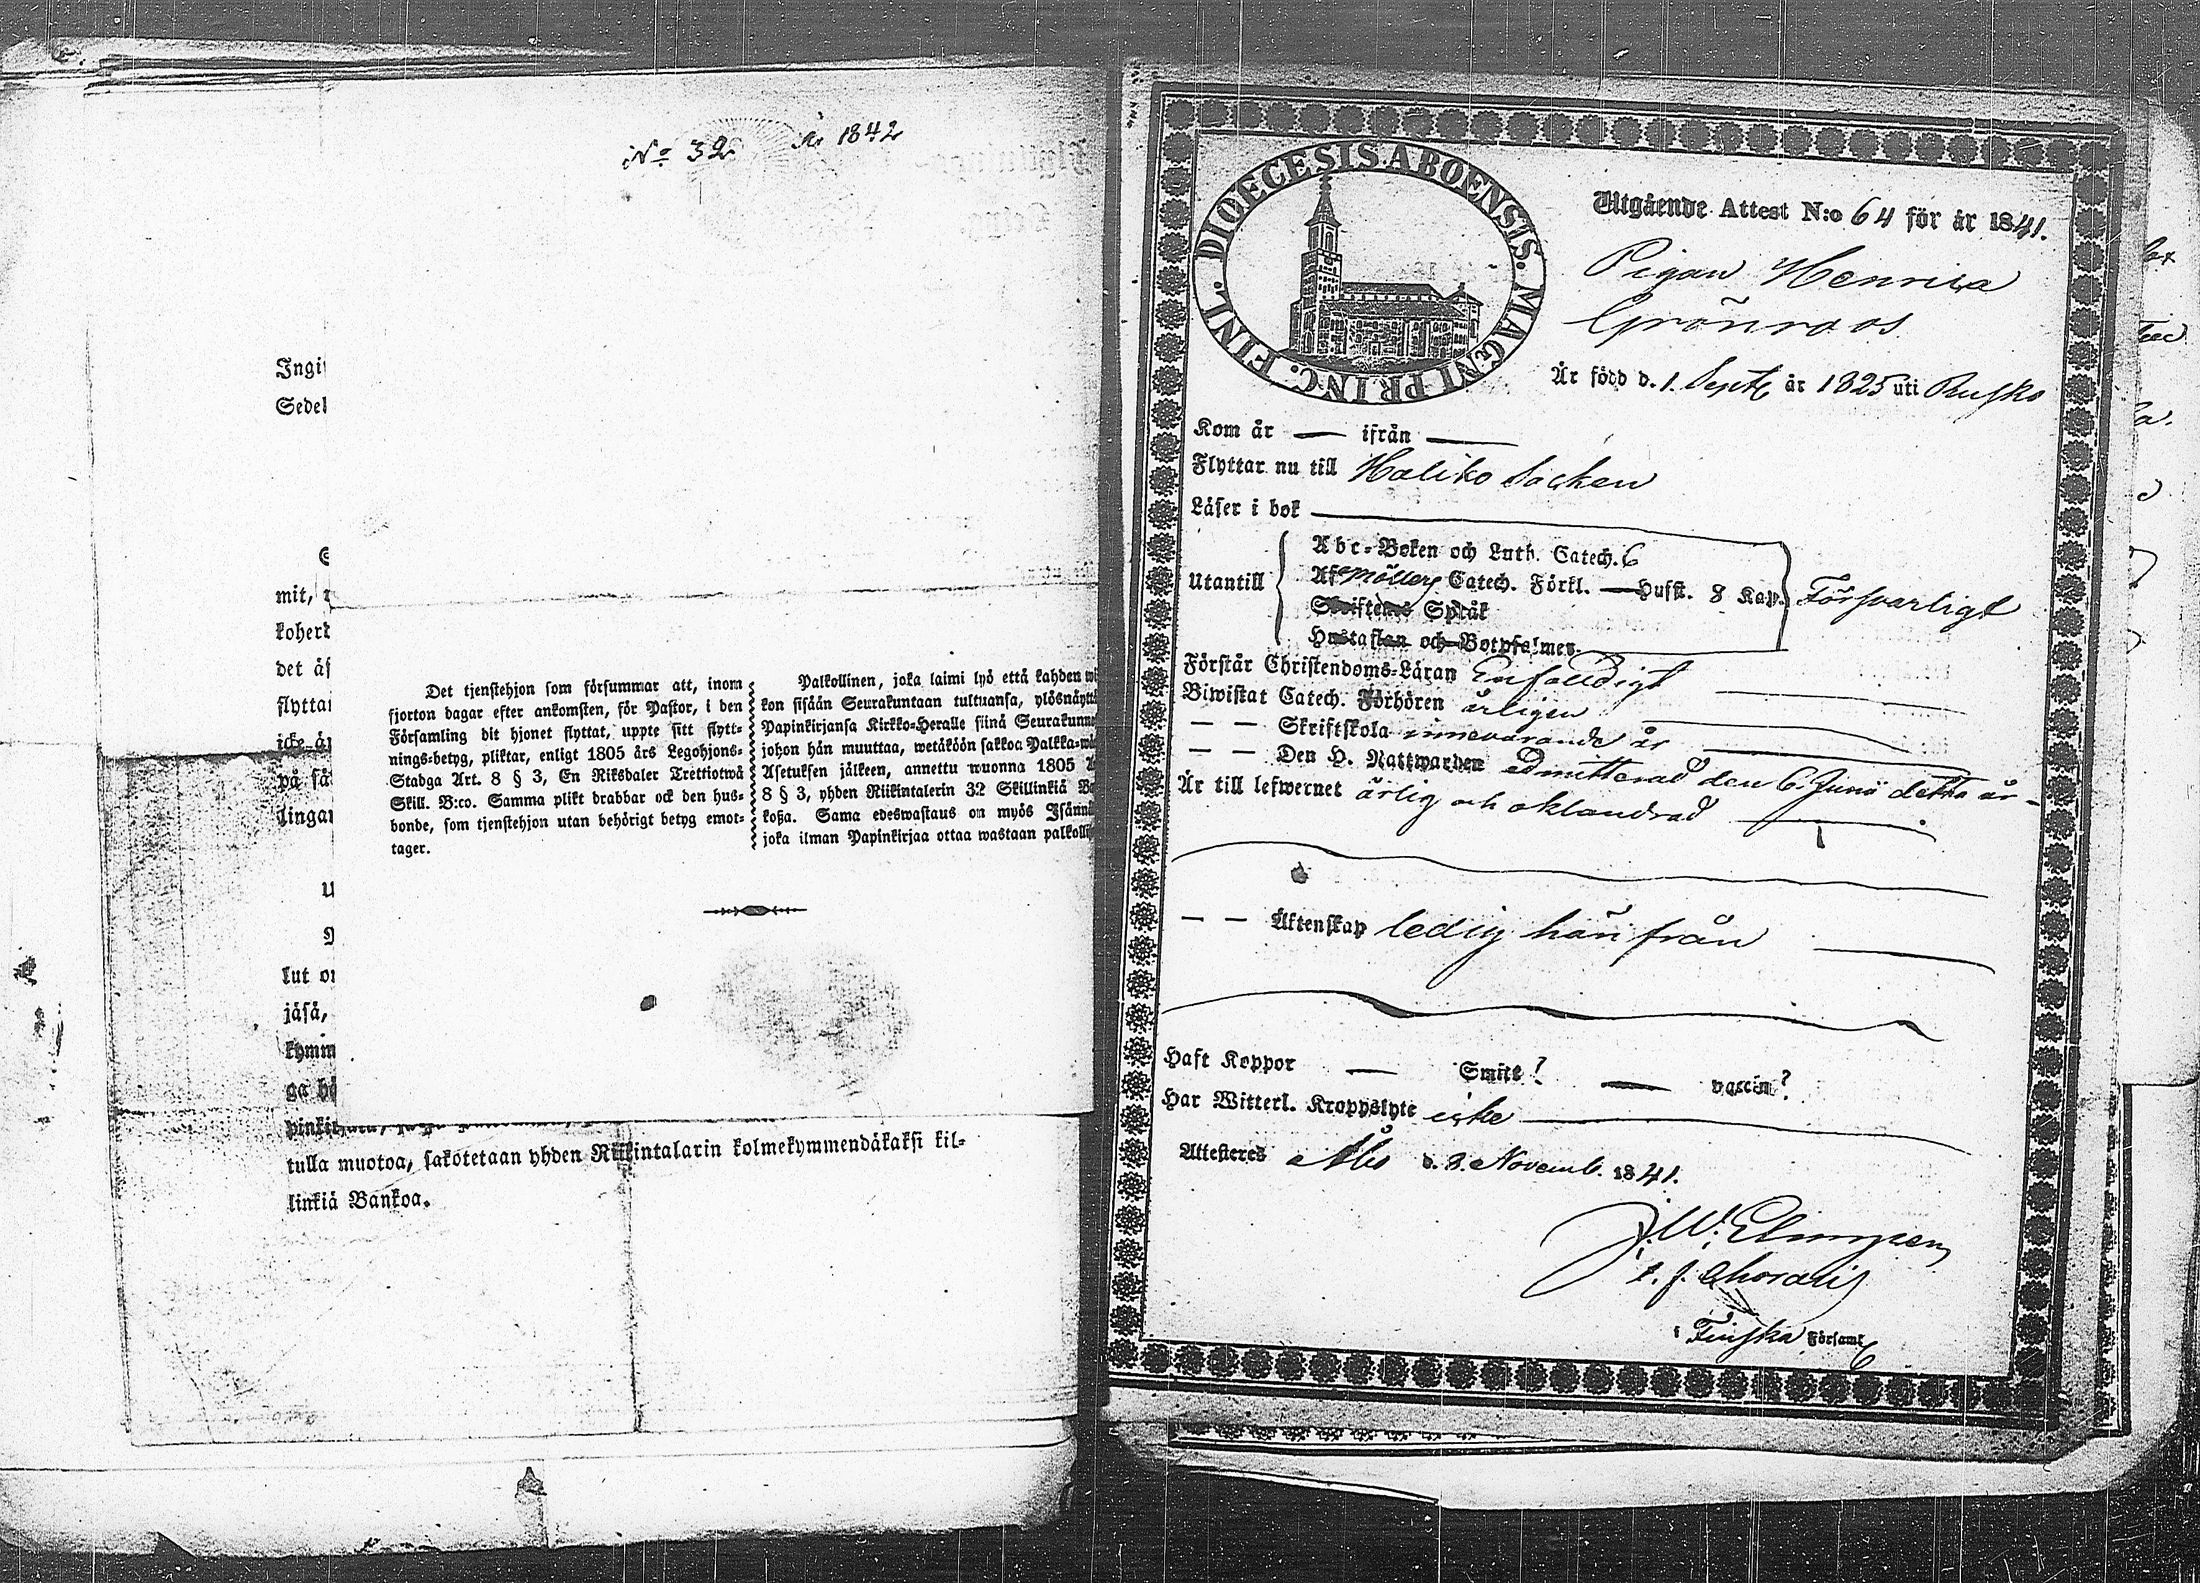 No 32 År 1842
Ingi
Sedel
mit,
koher
det äf
flyttar
icke är
på så
lingar
Det tjenstehjon som försummar att, inom
fjorton dagar efter ankomsten, för Pastor, i den
Församling dit hjonet flyttat, uppte sitt flytt-
nings-betyg, pliktar, enligt 1805 års Legohjons-
Stadga Art. 8 § 3, En Riksdaler Trettiotwå
Skill. B:co. Samma plikt drabbar ock den hus-
bonde, som tjenstehjon utan behörigt betyg emot-
tager.
Palkollinen, joka laimi lyö että kahden wii
kon sisään Seurakuntaan tultuansa, ylösnäyttä
Papinkirjansa Kirkko-Heralle siinä Seurakunna
johon hän muuttaa, wetäköön sakkoa Palkka-wä
Asetuksen jälkeen, annettu wuonna 1805
8 § 3, yhden Riikintalerin 32 Skillinkiä B
koßa. Sama edeswastaus on myös Isännä
joka ilman Papinkirjaa ottaa wastaan palkolli
lut on
jäsä,
kymm
ga
pinkir
tulla muotoa, sakotetaan yhden Riikintalarin kolmekymmendäkaksi kil-
linkiä Bankoa.
DIOECESIS ABOENSIS. MAGNI PRINC. FINL.
Utgående Attest N:o 64 för år 1841.
Pigan Henrica
Grönroos
Är född d. 1. Septb år 1825 uti Rusko
Kom år — ifrån —
Flyttar nu till Haliko Socken
Läser i bok
Utantill
Abc-Boken och Luth. Catech. 6
Af Möllers Catech. Förkl. — Husst. 8 Kap.
Skriftens Språk
Hustaflan och Botpsalmer.
Försvarligt
Förstår Christendoms-Läran Enfaldigt
Biwistat Catech. Förhören årligen
— — Skriftskola innevarande år
— — Den H. Nattwarden Admitterad den 6. Junii detta år —
Är till lefwernet ärlig och oklandrad
— — Äktenskap ledig här ifrån
Haft Koppor — Smitt? — vaccin?
Har Witterl. Kroppslyte icke
Attesteres Åbo d. 8. Novemb. 1841.
t. f. Choralis
i Finska Församl